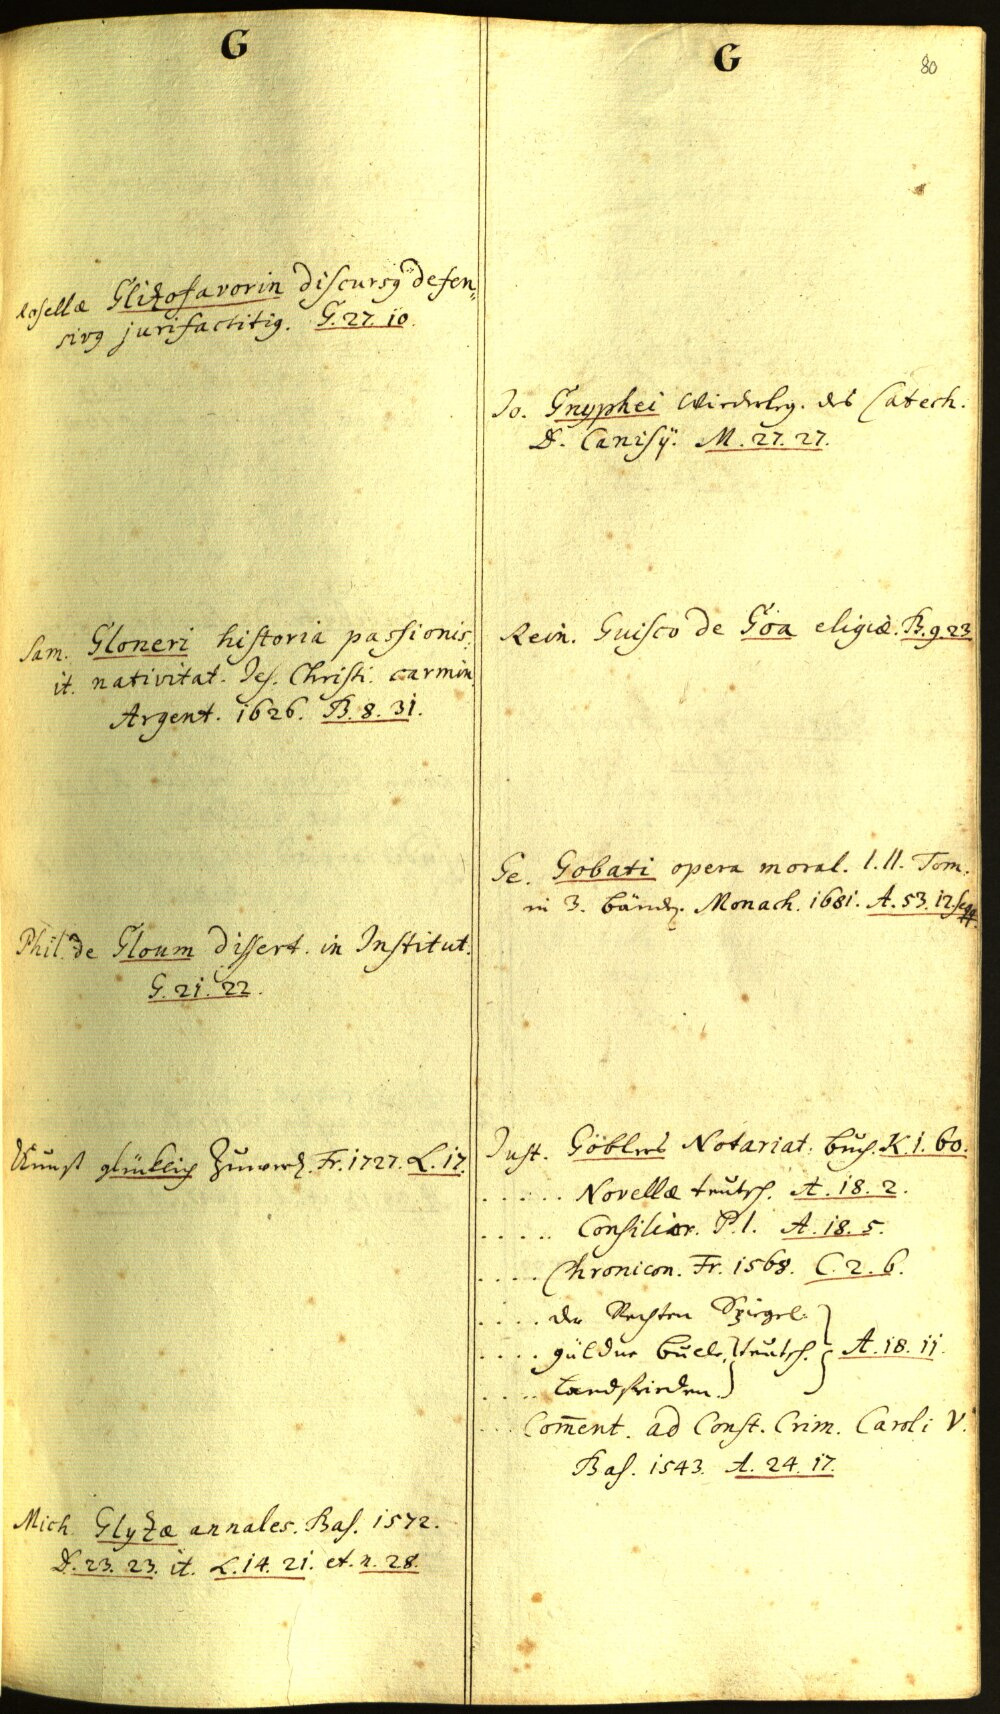 G
Rosellæ Glizofavorin discursq defen„
sivq jurisfactitiq. G. 27. 10.
Sam. Gloneri historia passionis,
it. nativitat. Jes. Christi. carmin.
Argent. 1626. B. 8. 31.
Phil. de Gloum dissert. in Institut.
G. 21. 22.
Kunst glüklich Fr. 1727. L. 17.
Mich. Glyzæ annales. Bas. 1572.
D. 23. 23. it. L. 14. 21. et. n. 28.
G
80
Jo. Gnyphei Wiederleg. des Catech.
D. Canisÿ. M. 27. 27.
Rein. Guisco de Göa eligiæ. B. 9. 23
Ge. Gobati opera moral. I. II. Tom.
in 3. bänd. Monach. 1681. A. 53. 12. seqq.
Just. Göblers Notariat. buch. K. 1. 60.
. . . . . Novellæ teutsch. A. 18. 2.
. . . . . Consilior. P. I. A. 18. 5.
. . . . Chronicon. Fr. 1568. C. 2. 6.
. . . . der Rechten Spiegel.
. . . . güldne bulle, teutsch. A. 18. 11.
. . . . Landfrieden.
. . . Com̄ent. ad Const. Crim. Caroli V.
Bas. 1543. A. 24. 17.